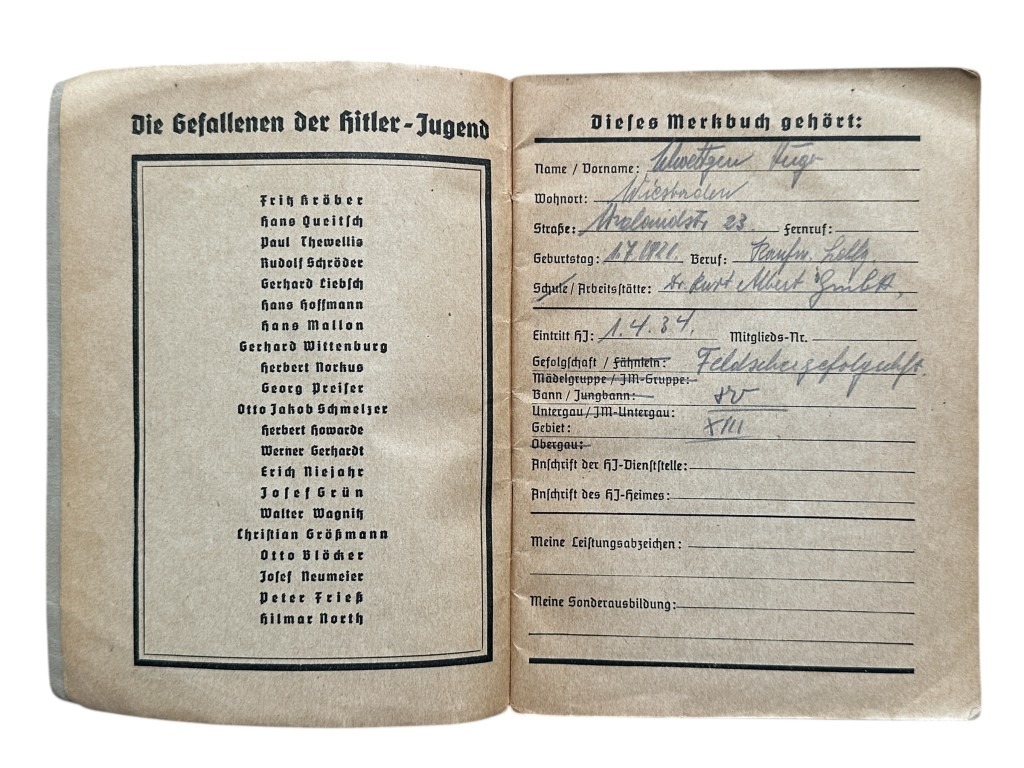 Die Gefallenen der Hitler-Jugend
Fritz Kröber
Hans Queitsch
Paul Thewellis
Rudolf Schröder
Gerhard Liebsch
Hans Hoffmann
Hans Mallon
Gerhard Wittenburg
Herbert Norkus
Georg Preiser
Otto Jakob Schmelzer
Herbert Howarde
Werner Gerhardt
Erich Niejahr
Josef Grün
Walter Wagnitz
Christian Größmann
Otto Blöcker
Josef Neumeier
Peter Frieß
Hilmar North
Dieses Merkbuch gehört:
Name / Vorname:
Wohnort: Wiesbaden
Straße: 23. Fernruf:
Geburtstag: Beruf: Kaufm.
Schule / Arbeitsstätte: Dr. Kurt Albert GmbH,
Eintritt HJ: 1.4.34. Mitglieds-Nr.
Gefolgschaft / Fähnlein: Feldschergefolgschft.
Mädelgruppe / JM-Gruppe:
Bann / Jungbann: 80
Untergau / JM-Untergau:
Gebiet: XIII
Obergau:
Anschrift der HJ-Dienststelle:
Anschrift des HJ-Heimes:
Meine Leistungsabzeichen:
Meine Sonderausbildung: